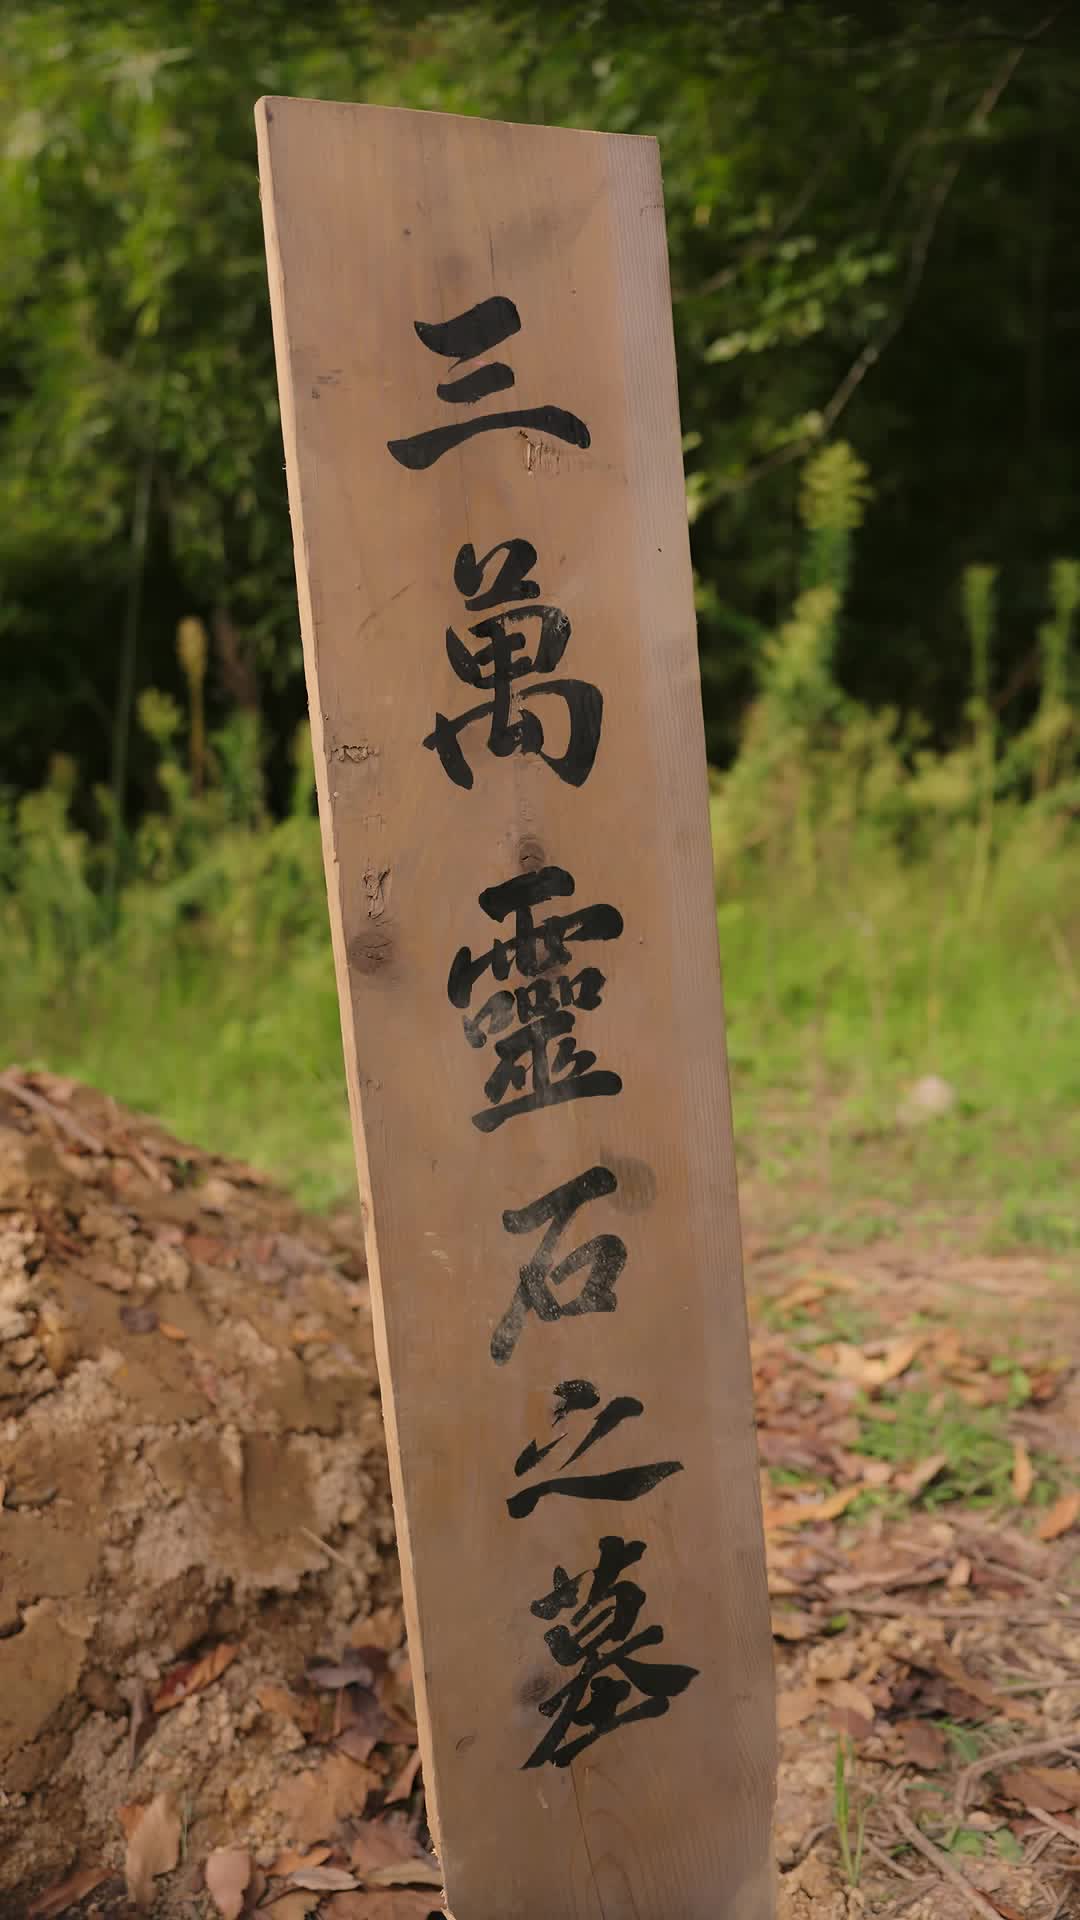 三萬靈石之墓